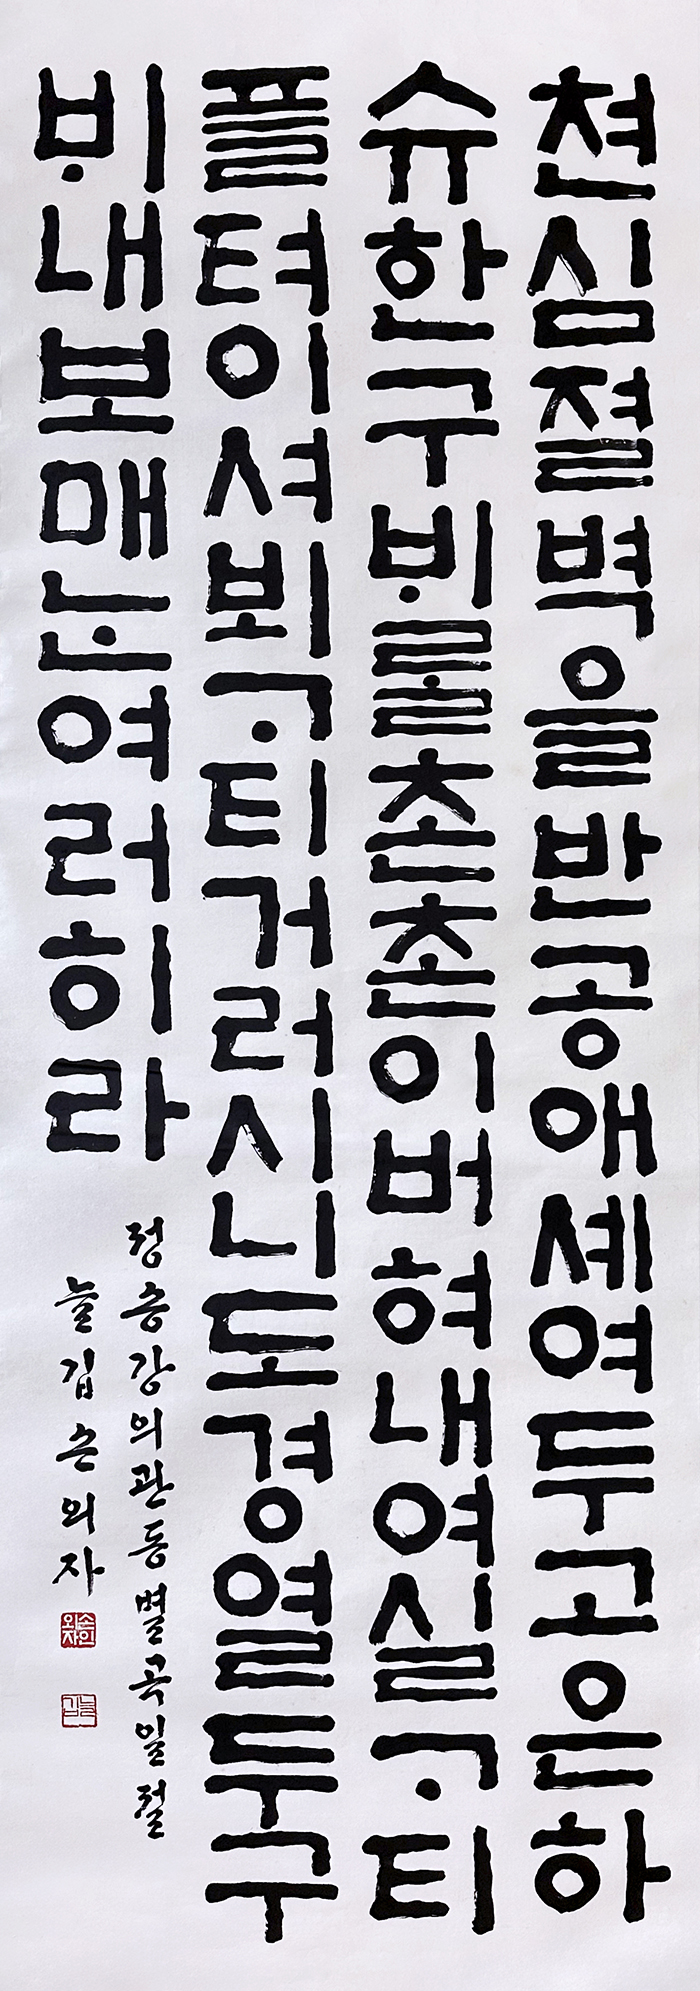 쳔심졀벽을반공애셰여두고은하
슈한구ᄇᆡᄅᆞᆯ촌촌이버혀내여실ᄀᆞ티
플텨이셔뵈ᄀᆞ티거러시니도경열두구
ᄇᆡ내보매ᄂᆞᆫ여러히라
정송강의관동별곡일절
늘깁손의자